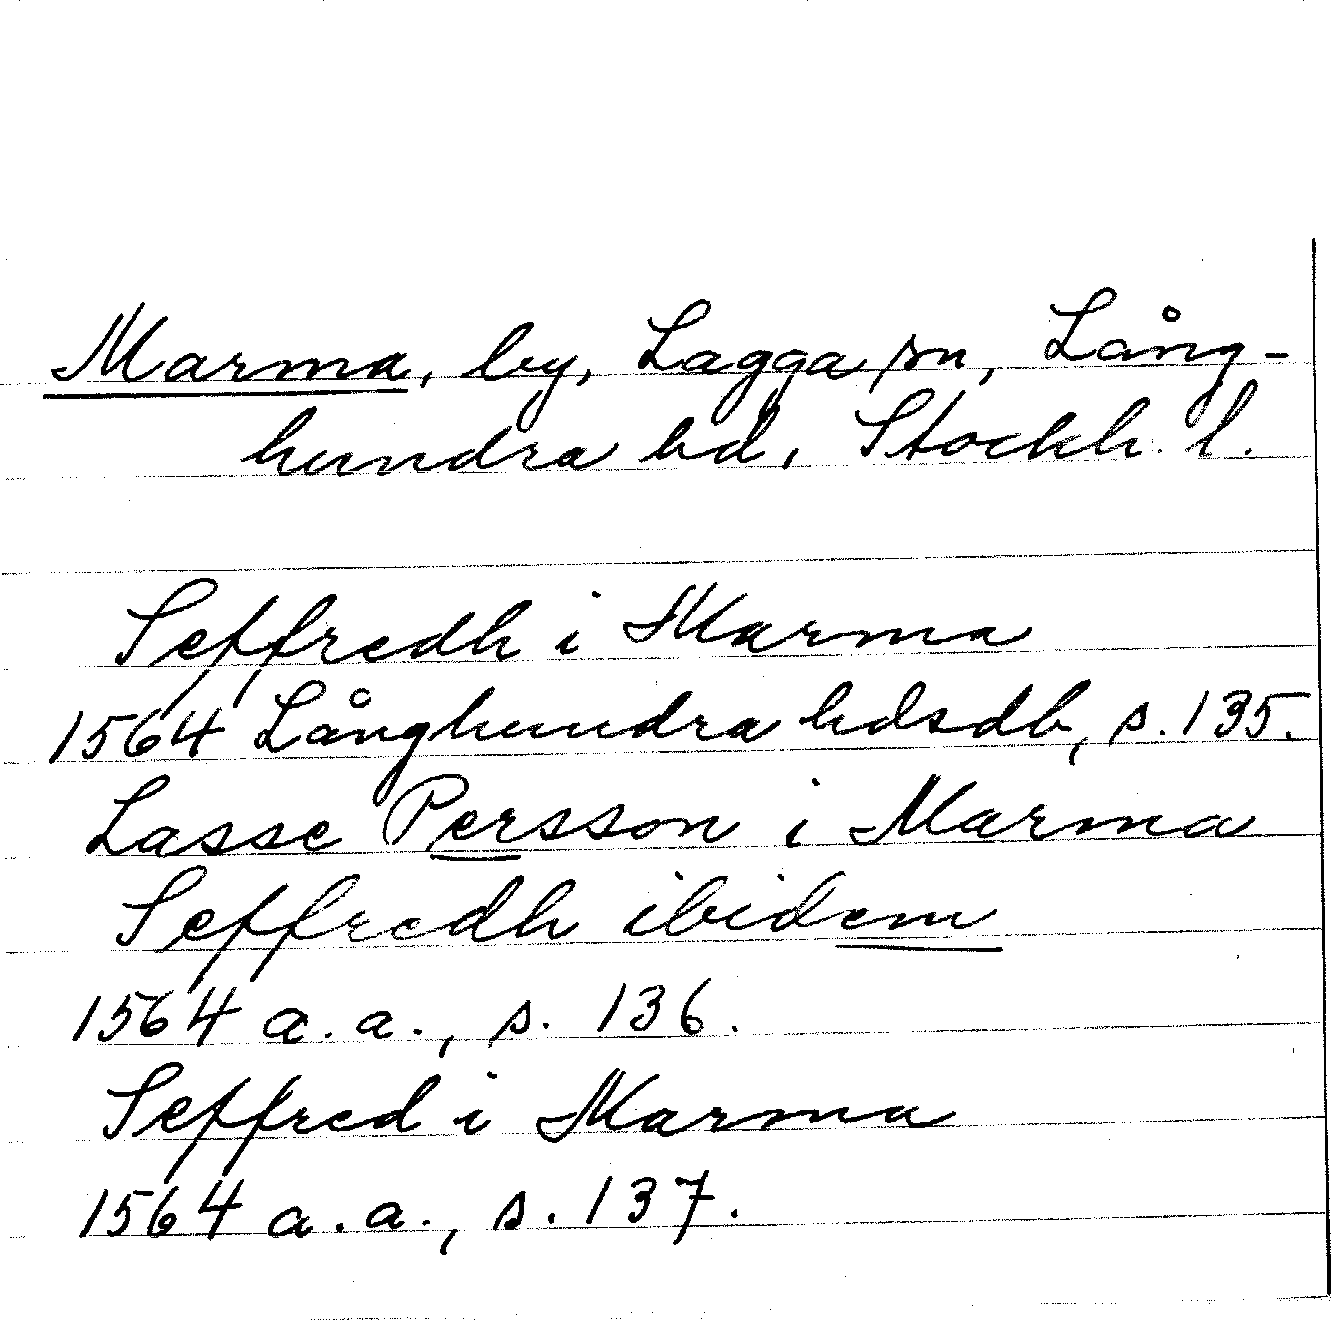 Marma, by, Lagga sn, Lång-
hundra hd, Stockh. l.
Seffredh i Marma
1564 Långhundra hdsdb, s. 135.
Lasse Persson i Marma
Seffredh ibidem
1564 a.a., s. 136.
Seffred i Marma
1564 a.a., s. 137.